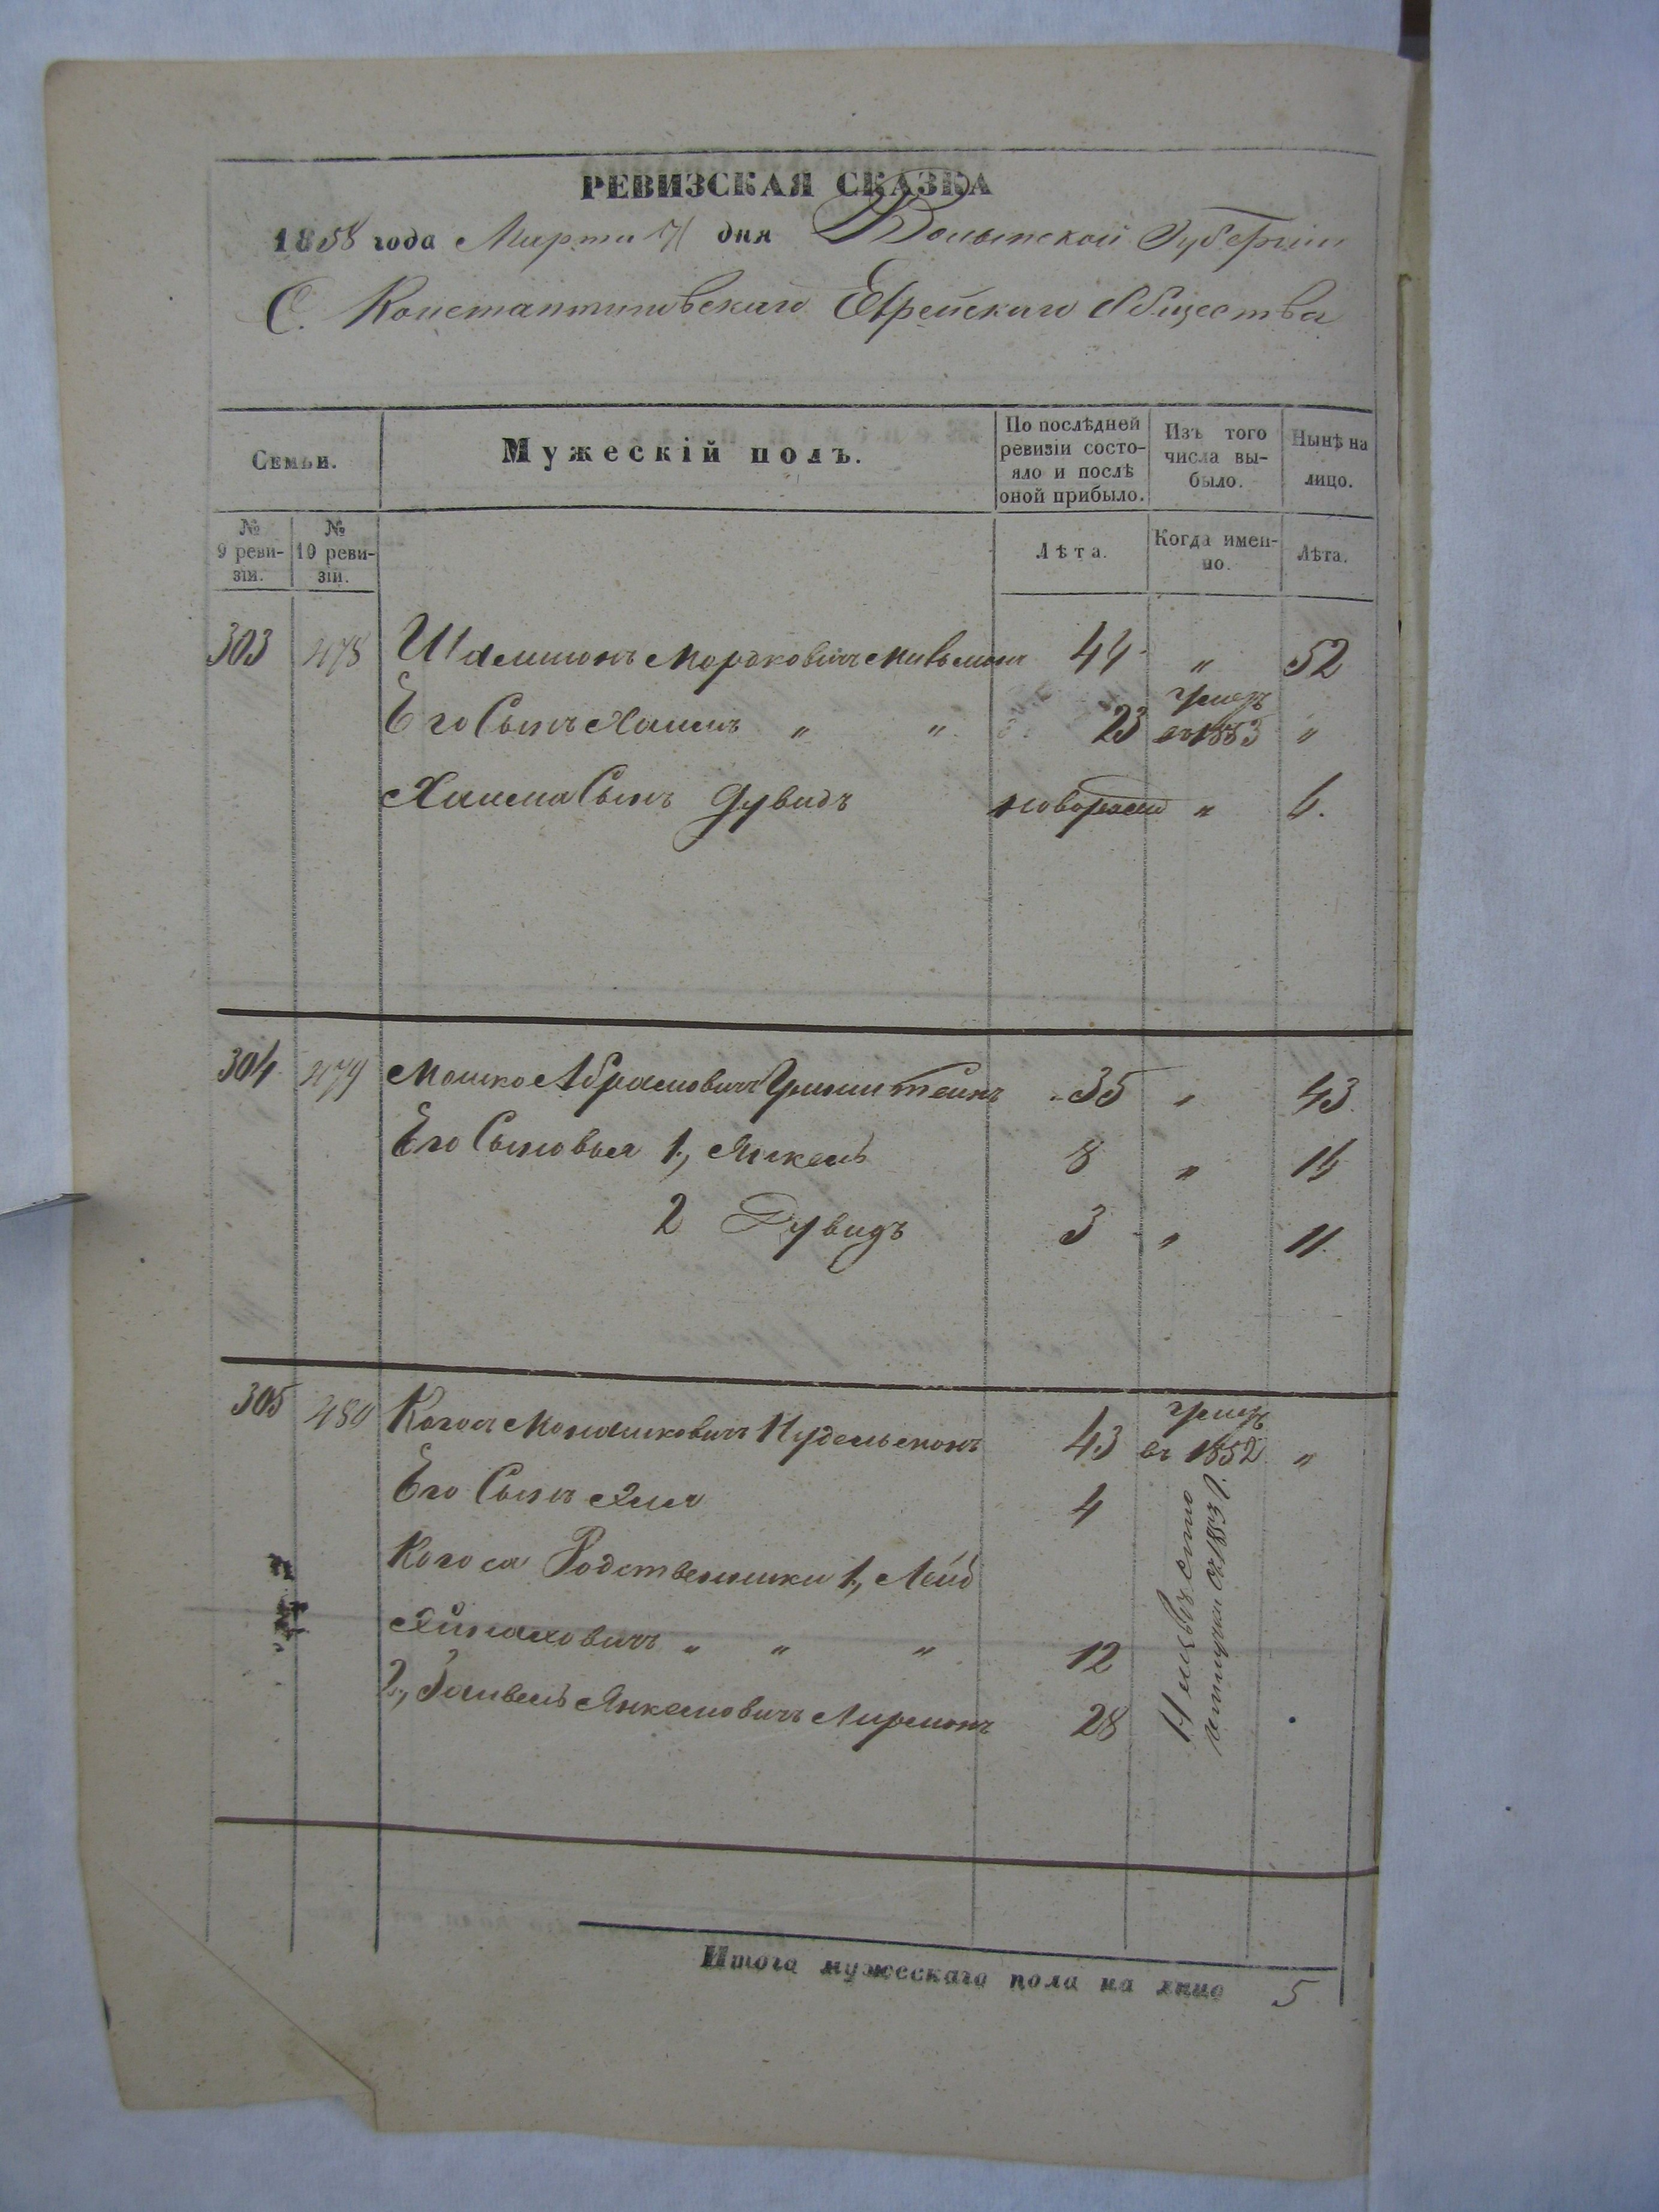 РЕВИЗСКАЯ СКАЗКА
1858 года Марта дня Волынской Губернии
С. Константиновскаго Еврейскаго Общества
Семьи.
Мужескій полъ.
По послѣдней ревизіи состояло и послѣ оной прибыло.
Изъ того числа выбыло.
Нынѣ на лицо.
№ 9 ревизіи.
№ 10 ревизіи.
Лѣта.
Когда именно.
Лѣта.
303 478 Мордковичъ 44 " 52
Его Сынъ Хаимъ " " 23 умеръ въ 1853 "
Хаима Сынъ Дувидъ новорожден " 6.
304 479 Мошко Абрамовичъ Гринштейнъ 35 " 43
Его Сыновья 1, Янкель 8 " 16
2 Дувидъ 3 " 11.
305 480 Нудельманъ 43 умеръ въ 1852 "
Его Сынъ 4
Родственники 1, Лейб
" " " 12
2, Янкелевичъ 28
въ 1853
Итога мужескаго пола на лицо 5